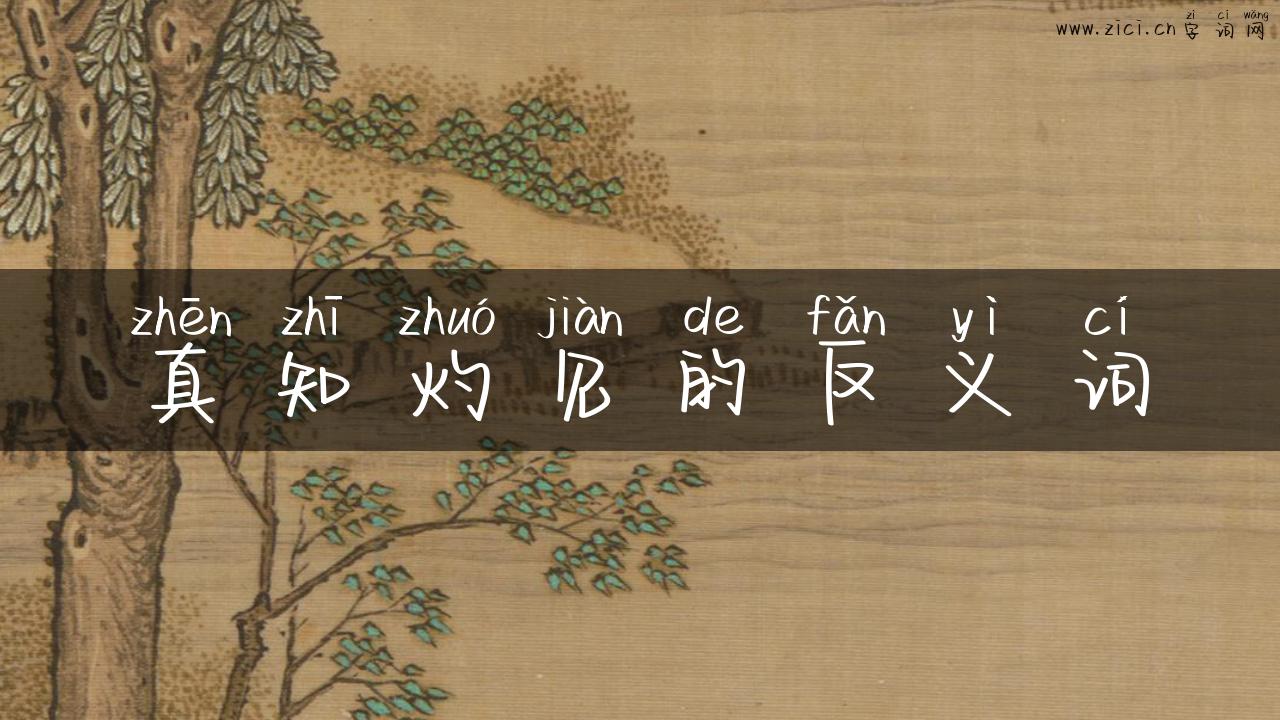 zì cí wǎng
www.zici.cn 字词网
zhēn zhī zhuó jiàn de fǎn yì cí
真知灼见的反义词